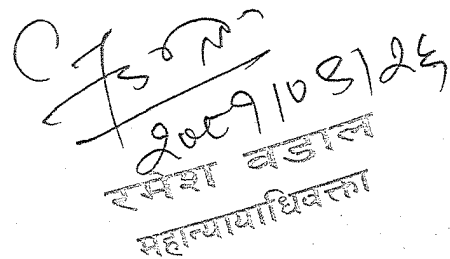 २०८१।०४।२६
रमेश वडाल
महान्यायाधिवक्ता